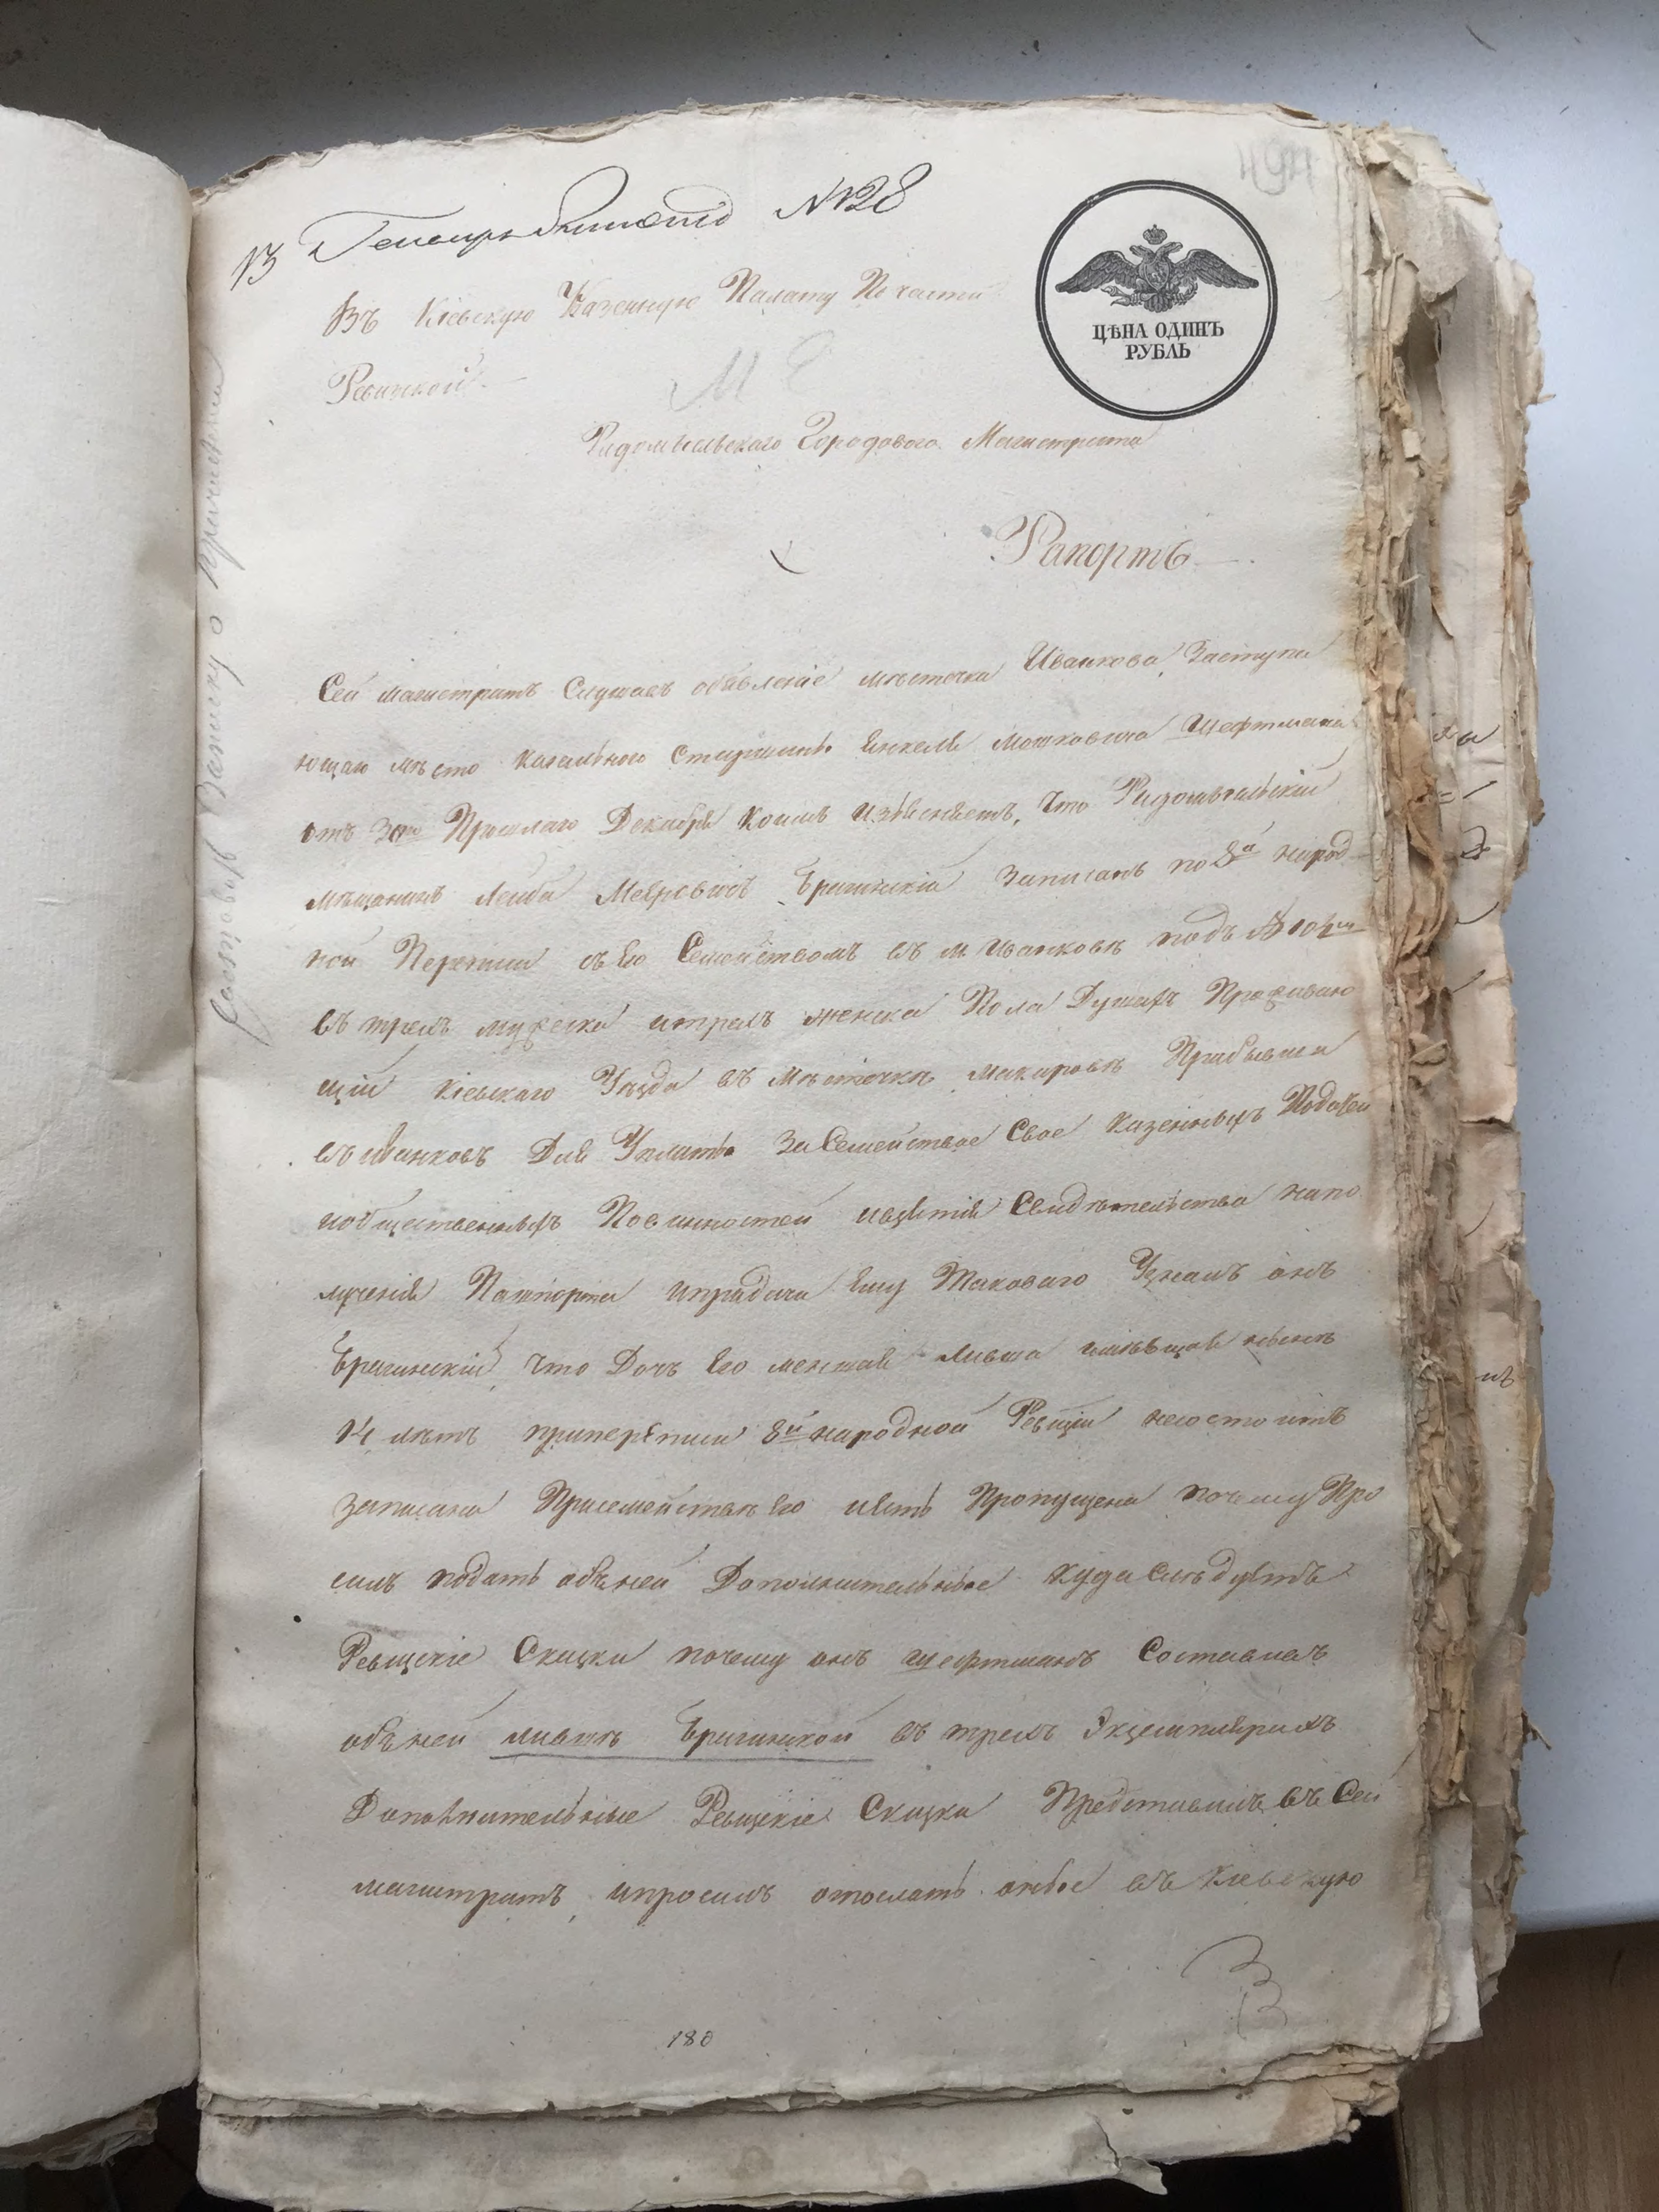 494
13 Генваря № 128
ЦѢНА ОДИНЪ
РУБЛЬ
Въ Кіевскую Казенную Палату По части
Ревизкой
Радомысльскаго Городоваго Магистрата
Рапортъ
Сей магистратъ Слушавъ объявленіе мѣстечка Иванкова Заступа
ющаго мѣсто кагального Старшины Янкеля Мошковича Шефтмана
отъ 30го Прошлаго Декабря коимъ изъясняетъ, что Радомысльскій
мѣщанинъ Лейба Мееровичъ Брагинскій записанъ по 8й народ
ной Переписи съ его Семействомъ въ м Иванковѣ подъ № 104м
въ трехъ мужеска и трехъ женска Пола Душахъ Проживаю
щій Кіевскаго Уѣзда въ Мѣстечкѣ Макаровѣ Прибывши
въ Иванковъ Для Уплаты За Семейство Свое Казенныхъ Податей
и общественныхъ Повинностей и взятія Свидѣтельства на по
лученія Пашпорта и при выдачи Ему Таковаго Узналъ онъ
Брагинскій, что Дочь Его меншая Ливша имѣющая нынѣ
14 лѣтъ при переписи 8й народной Ревизіи не состоитъ
записана При семействѣ Его и есть Пропущена почему Про
силъ подать объ ней Дополнительные куда Слѣдуетъ
Ревизскіе Сказки почему онъ Шефтманъ Составивъ
объ ней Лившѣ Брагинской въ трехъ Экземплярахъ
Дополнительные Ревизскіе Сказки Представилъ въ Сей
магистратъ, и просилъ отослать оные въ Кіевскую
180